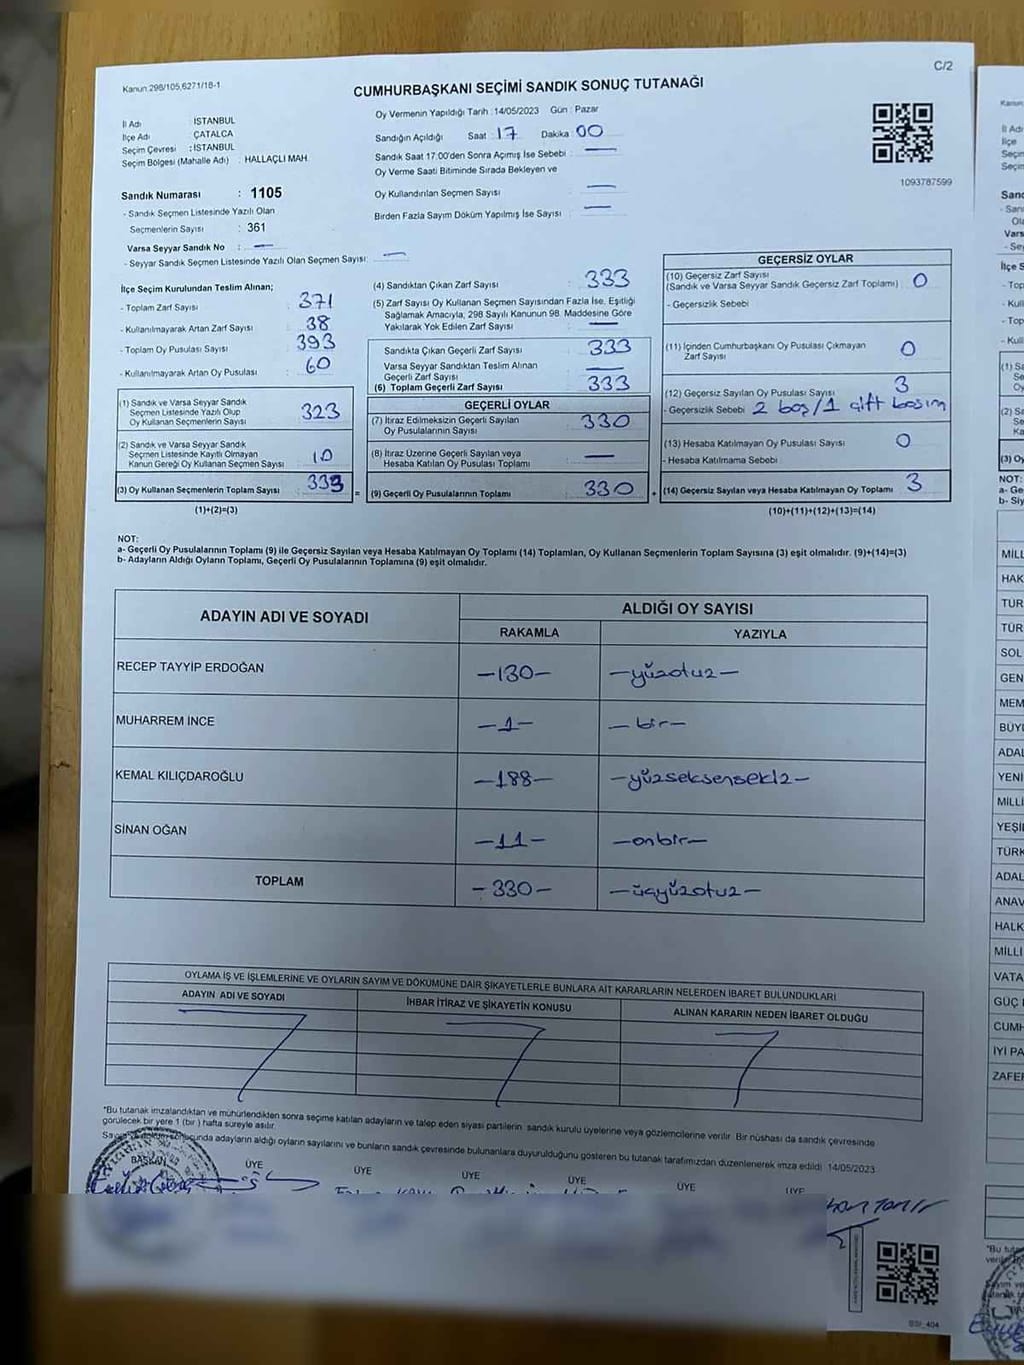 C/2
Kanun 298/105,6271/18-1
CUMHURBAŞKANI SEÇİMİ SANDIK SONUÇ TUTANAĞI
İl Adı : İSTANBUL
İlçe Adı : ÇATALCA
Seçim Çevresi : İSTANBUL
Seçim Bölgesi (Mahalle Adı) : HALLAÇLI MAH.
Sandık Numarası : 1105
- Sandık Seçmen Listesinde Yazılı Olan
Seçmenlerin Sayısı : 361
Varsa Seyyar Sandık No : —
- Seyyar Sandık Seçmen Listesinde Yazılı Olan Seçmen Sayısı: —
Oy Vermenin Yapıldığı Tarih : 14/05/2023 Gün : Pazar
Sandığın Açıldığı Saat : 17 Dakika 00
Sandık Saat 17:00'den Sonra Açımış İse Sebebi : —
Oy Verme Saati Bitiminde Sırada Bekleyen ve
Oy Kullandırılan Seçmen Sayısı : —
Birden Fazla Sayım Döküm Yapılmış İse Sayısı : —
1093787599
İlçe Seçim Kurulundan Teslim Alınan;
- Toplam Zarf Sayısı : 371
- Kullanılmayarak Artan Zarf Sayısı : 38
- Toplam Oy Pusulası Sayısı : 393
- Kullanılmayarak Artan Oy Pusulası : 60
(1) Sandık ve Varsa Seyyar Sandık
Seçmen Listesinde Yazılı Olup
Oy Kullanan Seçmen Sayısı 323
(2) Sandık ve Varsa Seyyar Sandık
Seçmen Listesinde Kayıtlı Olmayan
Kanun Gereği Oy Kullanan Seçmen Sayısı 10
(3) Oy Kullanan Seçmenlerin Toplam Sayısı 333 =
(1)+(2)=(3)
(4) Sandıktan Çıkan Zarf Sayısı : 333
(5) Zarf Sayısı Oy Kullanan Seçmen Sayısından Fazla İse, Eşitliği
Sağlamak Amacıyla, 298 Sayılı Kanunun 98. Maddesine Göre
Yakılarak Yok Edilen Zarf Sayısı : —
Sandıkta Çıkan Geçerli Zarf Sayısı : 333
Varsa Seyyar Sandıktan Teslim Alınan
Geçerli Zarf Sayısı : —
(6) Toplam Geçerli Zarf Sayısı : 333
GEÇERLİ OYLAR
(7) İtiraz Edilmeksizin Geçerli Sayılan
Oy Pusulalarının Sayısı : 330
(8) İtiraz Üzerine Geçerli Sayılan veya
Hesaba Katılan Oy Pusulası Toplamı : —
(9) Geçerli Oy Pusulalarının Toplamı : 330 +
GEÇERSİZ OYLAR
(10) Geçersiz Zarf Sayısı
(Sandık ve Varsa Seyyar Sandık Geçersiz Zarf Toplamı) : 0
- Geçersizlik Sebebi
(11) İçinden Cumhurbaşkanı Oy Pusulası Çıkmayan
Zarf Sayısı : 0
(12) Geçersiz Sayılan Oy Pusulası Sayısı : 3
- Geçersizlik Sebebi : 2 boş/1 çift basım
(13) Hesaba Katılmayan Oy Pusulası Sayısı : 0
- Hesaba Katılmama Sebebi
(14) Geçersiz Sayılan veya Hesaba Katılmayan Oy Toplamı : 3
(10)+(11)+(12)+(13)=(14)
NOT:
a- Geçerli Oy Pusulalarının Toplamı (9) ile Geçersiz Sayılan veya Hesaba Katılmayan Oy Toplamı (14) Toplamları, Oy Kullanan Seçmenlerin Toplam Sayısına (3) eşit olmalıdır. (9)+(14)=(3)
b- Adayların Aldığı Oyların Toplamı, Geçerli Oy Pusulalarının Toplamına (9) eşit olmalıdır.
ADAYIN ADI VE SOYADI ALDIĞI OY SAYISI
RAKAMLA YAZIYLA
RECEP TAYYİP ERDOĞAN -130- -yüzotuz-
MUHARREM İNCE -1- -bir-
KEMAL KILIÇDAROĞLU -188- -yüzseksensekiz-
SİNAN OĞAN -11- -onbir-
TOPLAM -330- -üçyüzotuz-
OYLAMA İŞ VE İŞLEMLERİNE VE OYLARIN SAYIM VE DÖKÜMÜNE DAİR ŞİKAYETLERLE BUNLARA AİT KARARLARIN NELERDEN İBARET BULUNDUKLARI
ADAYIN ADI VE SOYADI İHBAR İTİRAZ VE ŞİKAYETİN KONUSU ALINAN KARARIN NEDEN İBARET OLDUĞU
*Bu tutanak imzalandıktan ve mühürlendikten sonra seçime katılan adayların ve talep eden siyasi partilerin sandık kurulu üyelerine veya gözlemcilerine verilir. Bir nüshası da sandık çevresinde
görülecek bir yere 1 (bir) hafta süreyle asılır.
sonucunda adayların aldığı oyların sayılarını ve bunların sandık çevresinde bulunanlara duyurulduğunu gösteren bu tutanak tarafımızdan düzenlenerek imza edildi 14/05/2023
BAŞKAN ÜYE ÜYE ÜYE ÜYE ÜYE ÜYE
Kanun
İl Adı
İlçe
Seçim
Seçim
Sandı
İlçe S
NOT:
MİLL
HAK
TUR
TÜR
SOL
GEN
MEM
BÜYÜ
ADAL
YENİ
MİLLİ
YEŞİ
TÜRK
ADAL
ANAV
HALK
MİLLİ
VATA
GÜÇ
CUMH
İYİ PA
ZAFER
*Bu tuta